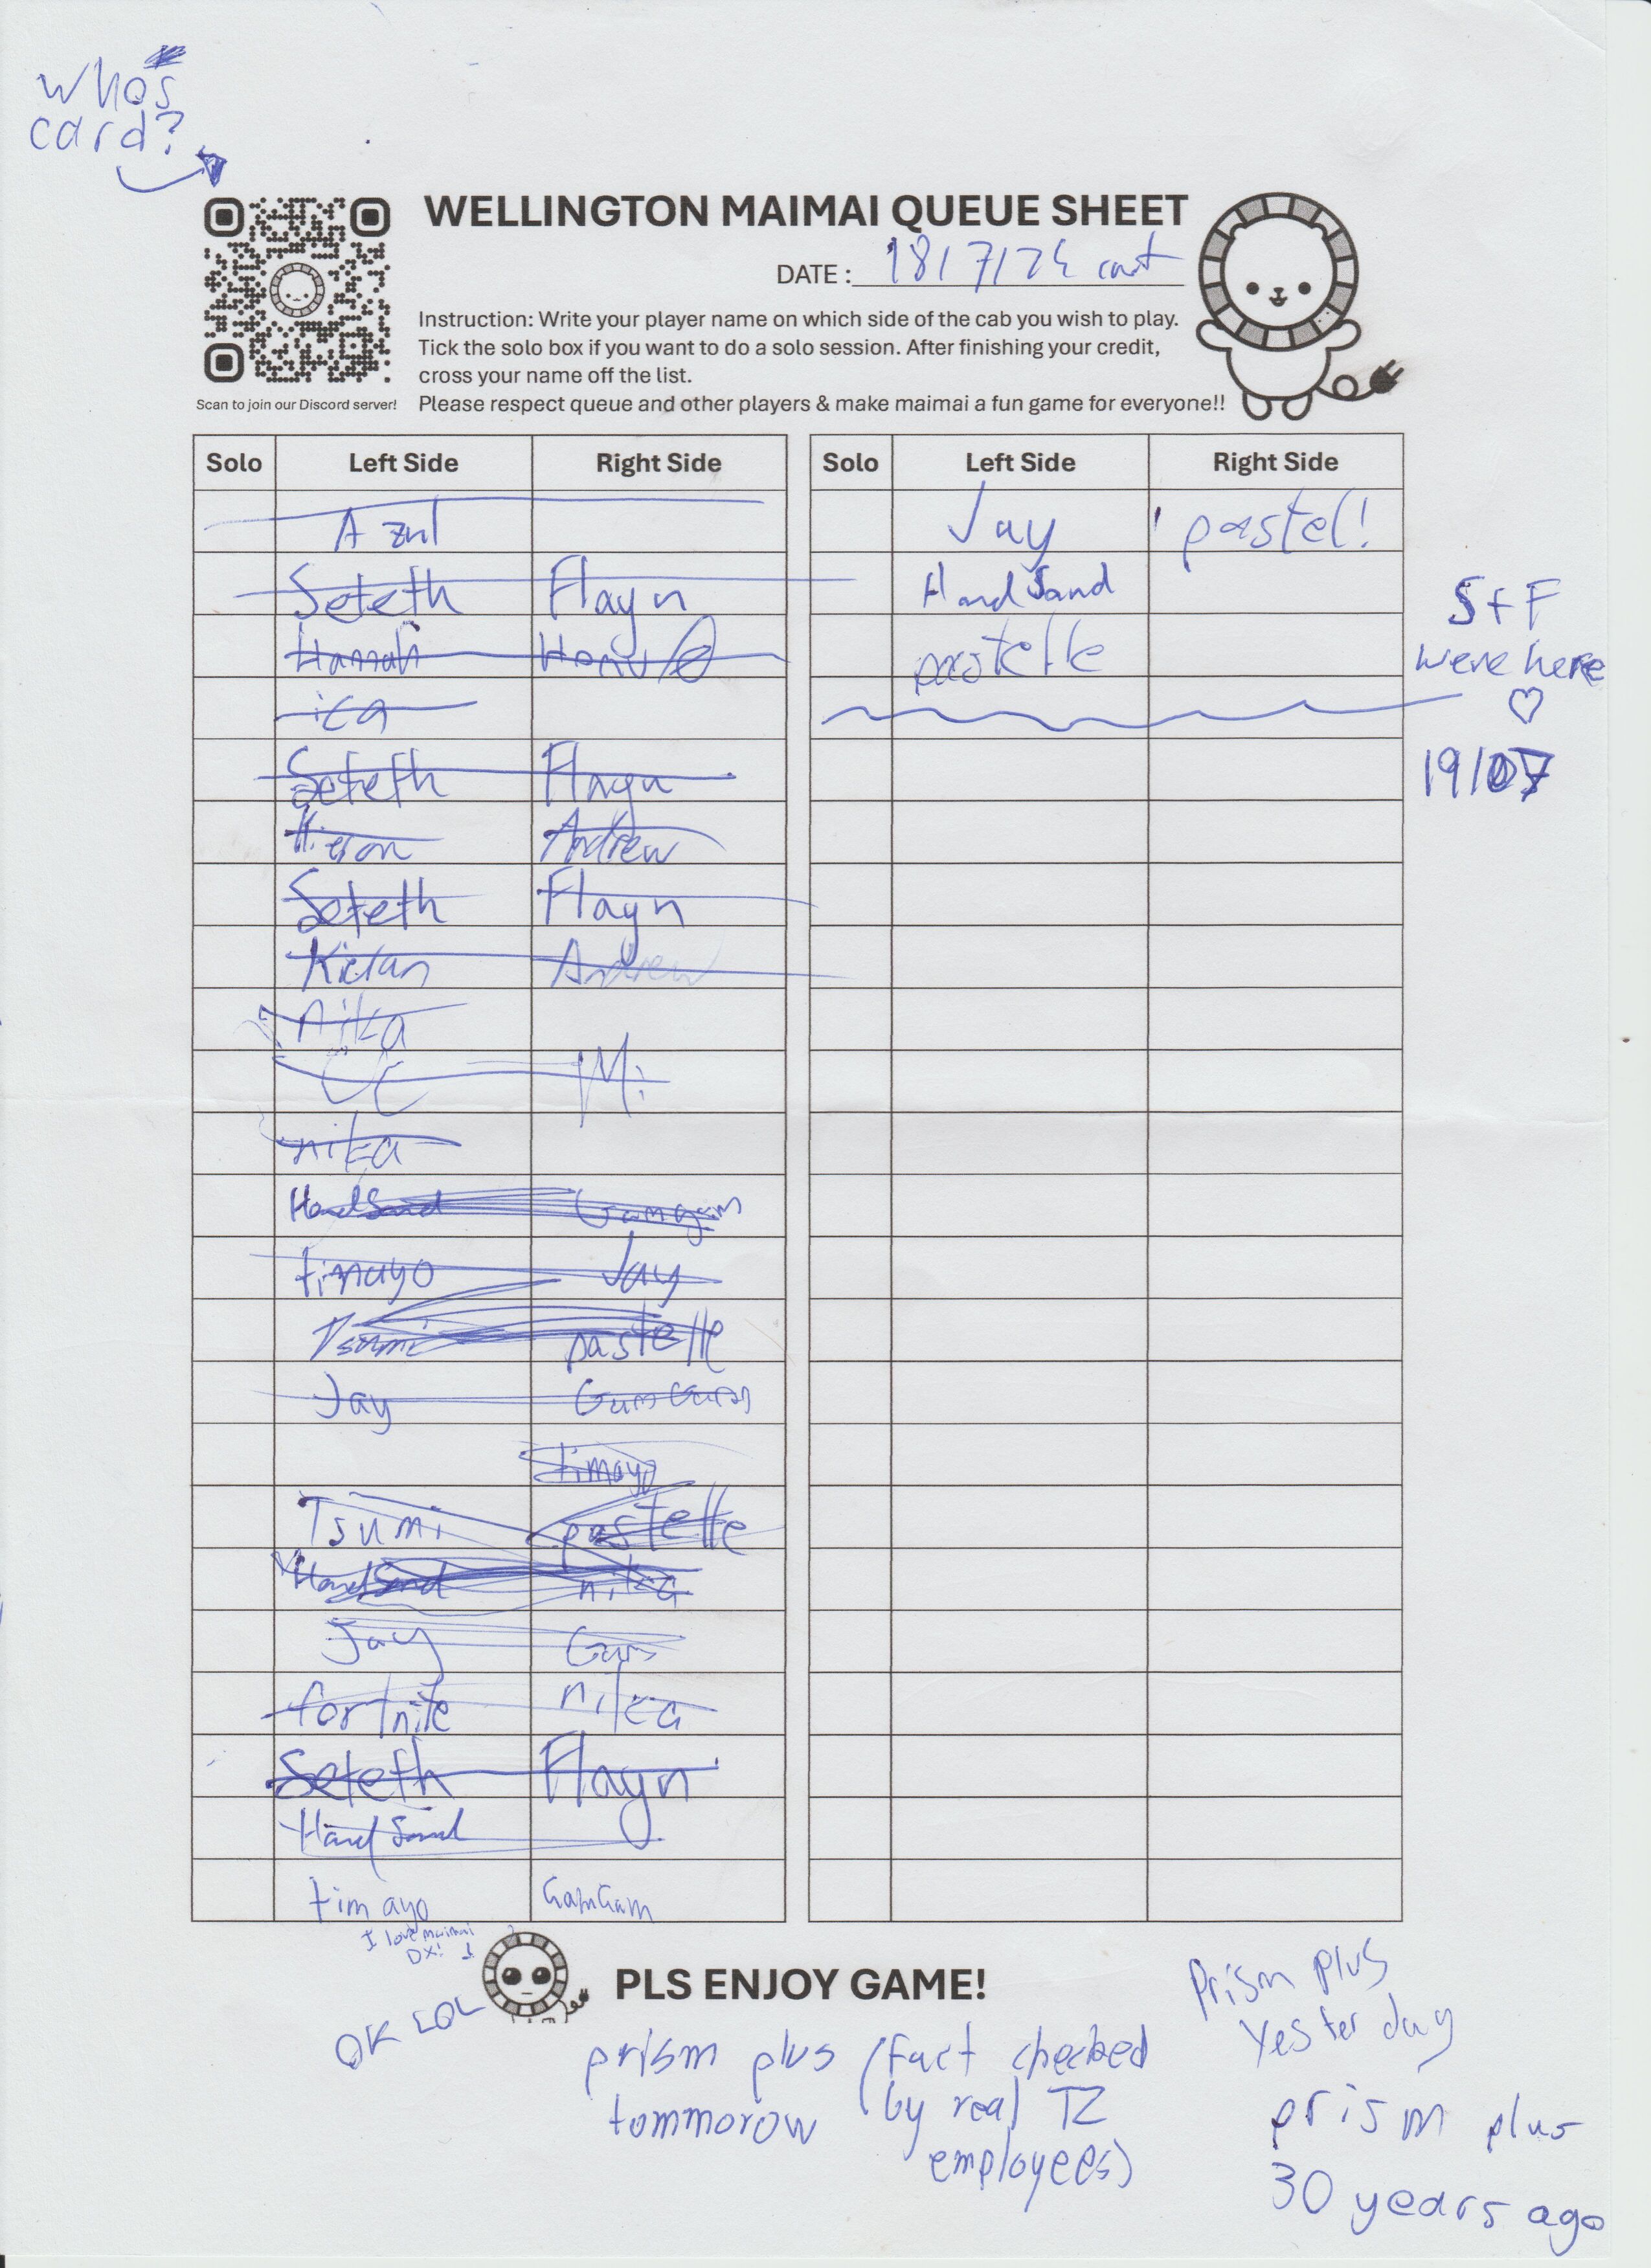 who's
card?
WELLINGTON MAIMAI QUEUE SHEET
DATE : 18/7/25 cont
Instruction: Write your player name on which side of the cab you wish to play.
Tick the solo box if you want to do a solo session. After finishing your credit,
cross your name off the list.
Please respect queue and other players & make maimai a fun game for everyone!!
Scan to join our Discord server!
Solo Left Side Right Side
Azul
Seteth Flayn
Hannah
ica
Seteth Flayn
Kieran Andrew
Seteth Flayn
Kieran Andrew
nika
CC Mi
nika
HandSand Gamgam
timayo Jay
Tsumi pastelle
Jay GamGam
timayo
Tsumi pastelle
HandSand nika
Jay Gam
fortnite nika
Seteth Flayn
Hand Sand
timayo GamGam
Solo Left Side Right Side
Jay pastel!
HandSand
pastelle
S+F
were here
♡
19/07
I love maimai
DX!
OK LOL
PLS ENJOY GAME!
prism plus
tommorow
(fact checked
by real TZ
employees)
Prism plus
Yesterday
prism plus
30 years ago